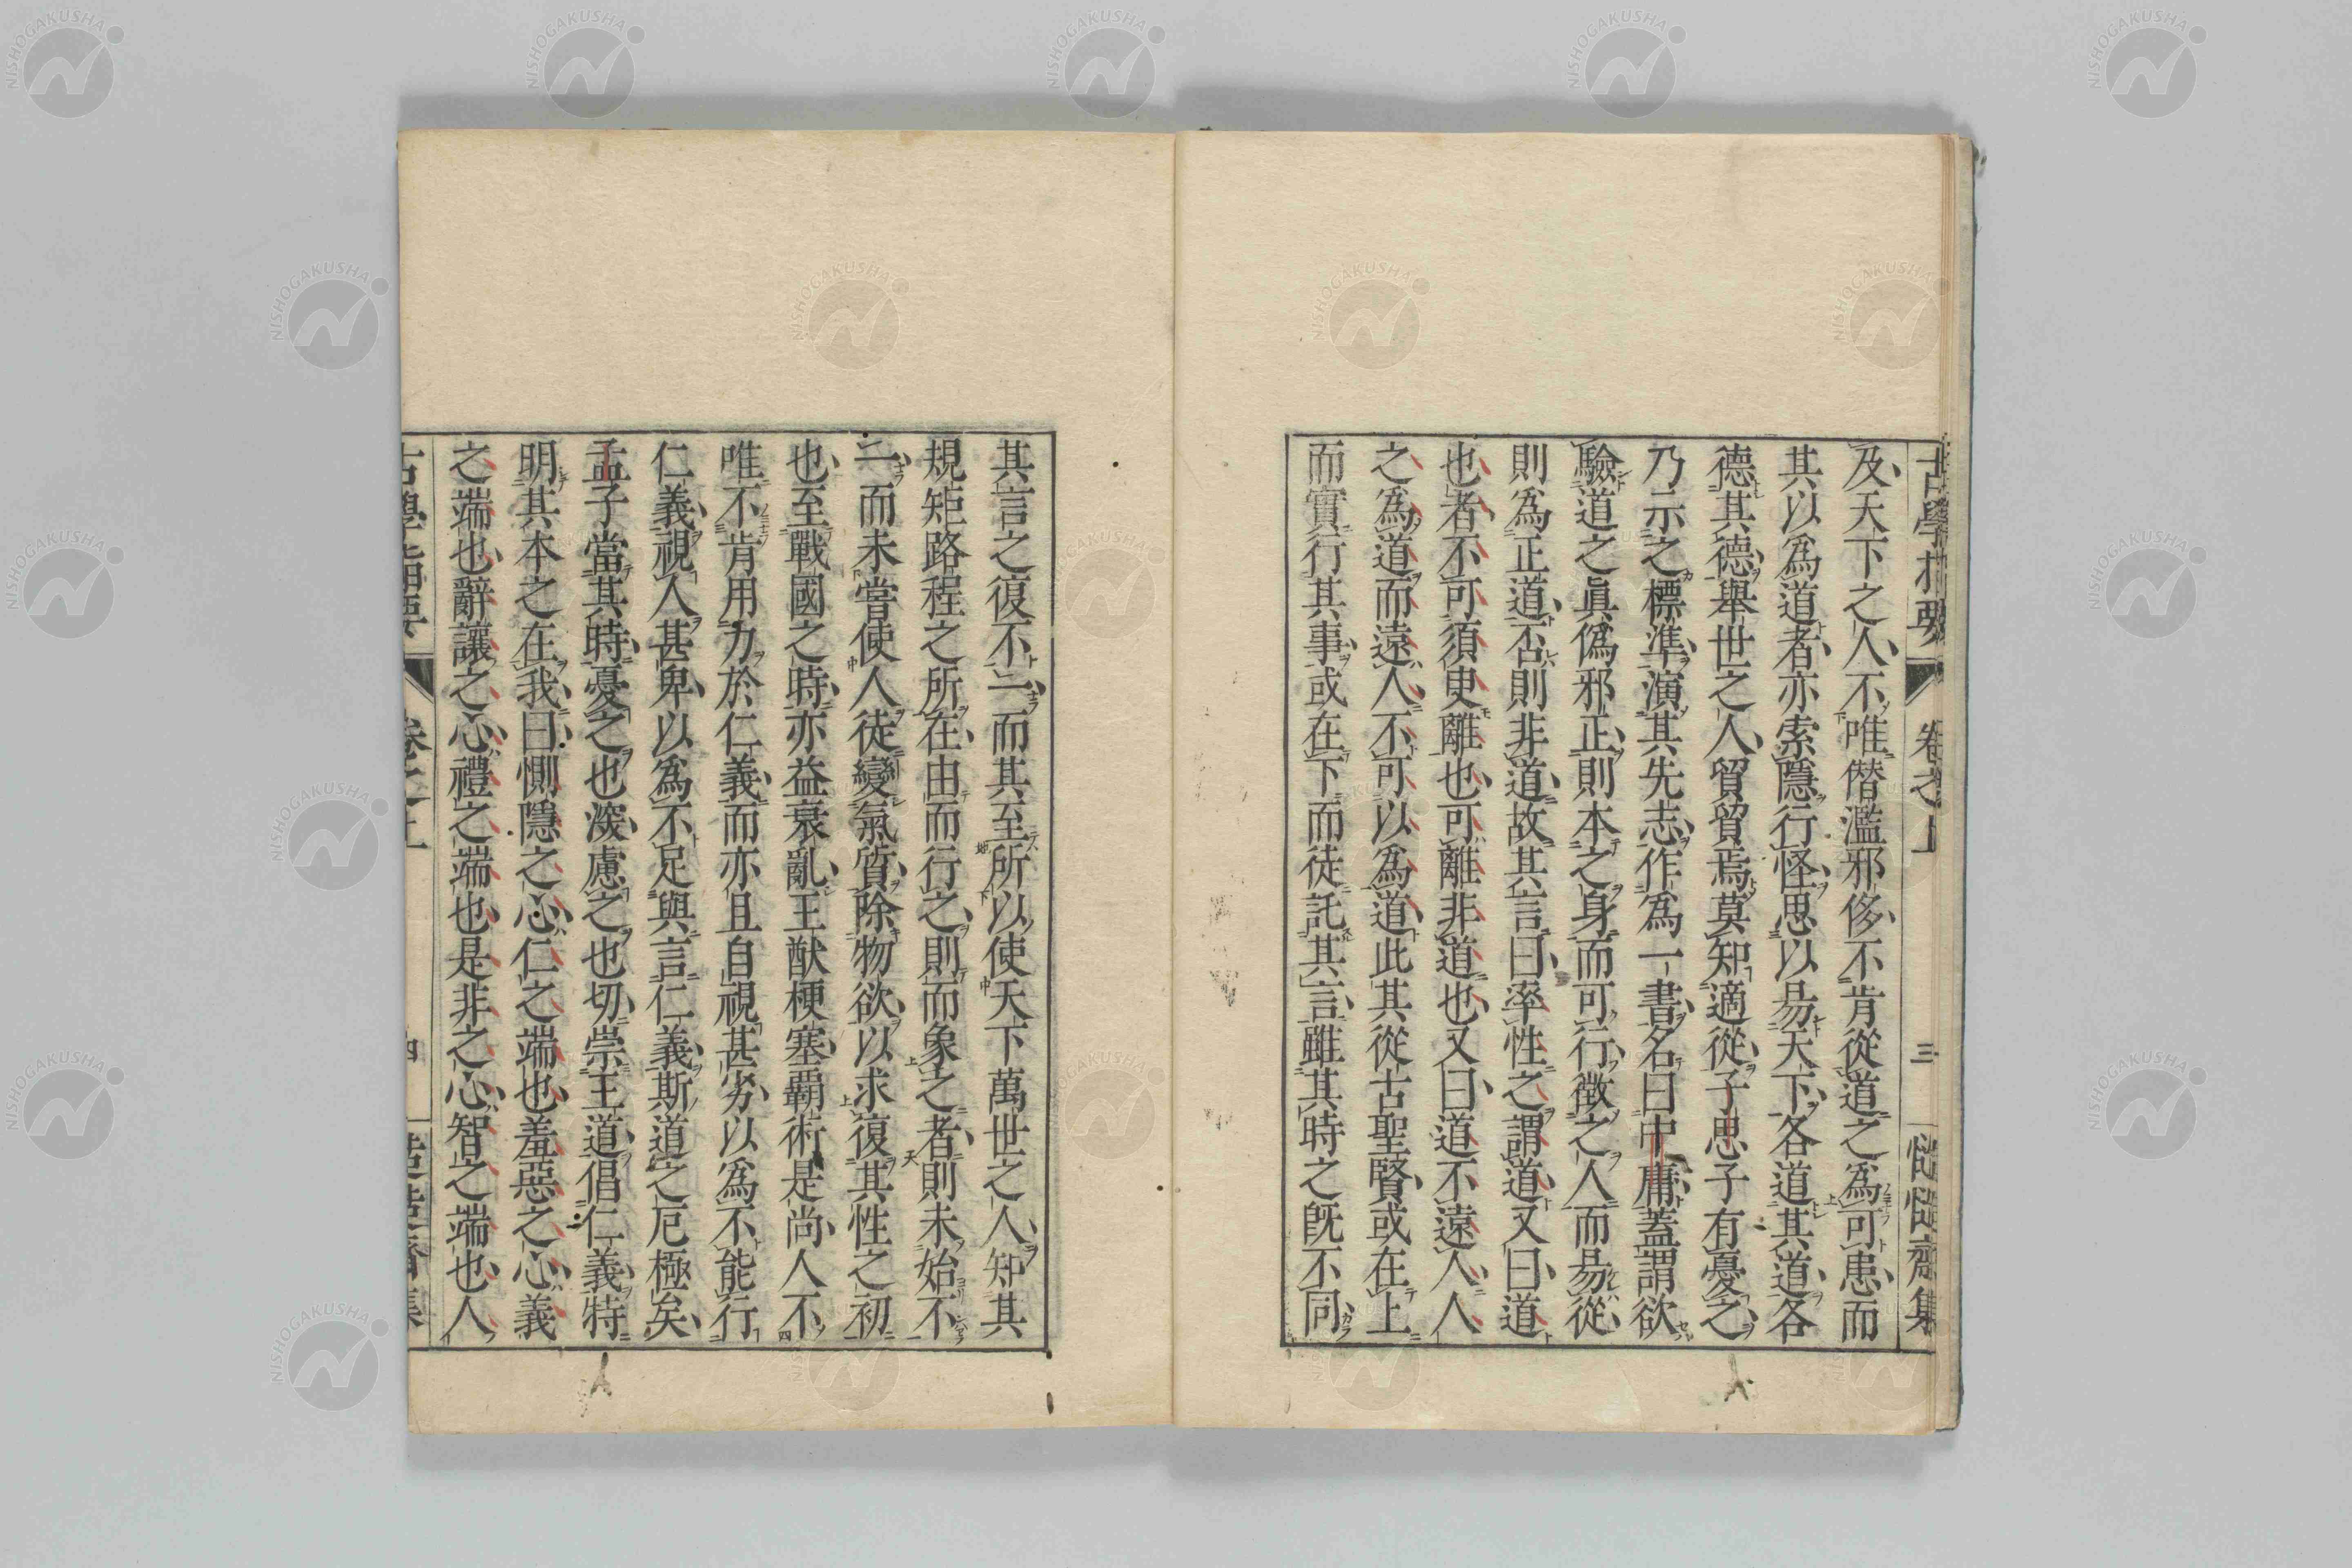 古學指要 卷之上 三 慥慥齋集
及天下之人不唯僭濫邪侈不肯從道之爲可患而
其以爲道者亦索隱行怪思以易天下各道其道各
德其德舉世之人貿貿焉莫知適從子思子有憂之
乃示之標準演其先志作爲一書名曰中庸蓋謂欲
驗道之眞僞邪正則本之身而可行徵之人而易從
則爲正道否則非道故其言曰率性之謂道又曰道
也者不可須臾離也可離非道也又曰道不遠人人
之爲道而遠人不可以爲道此其從古聖賢或在上
而實行其事或在下而徒託其言雖其時之旣不同
其言之復不一而其至所以使天下萬世之人知其
規矩路程之所在由而行之則而象之者則未始不
一而未嘗使人徒變氣質除物欲以求復其性之初
也至戰國之時亦益衰亂王猷梗塞霸術是尚人不
唯不肯用力於仁義而亦且自視甚劣以爲不能行
仁義視人甚卑以爲不足與言仁義斯道之厄極矣
孟子當其時憂之也深慮之也切崇王道倡仁義特
明其本之在我曰惻隱之心仁之端也羞惡之心義
之端也辭讓之心禮之端也是非之心智之端也人
古學指要 卷之上 四
NISHOGAKUSHA